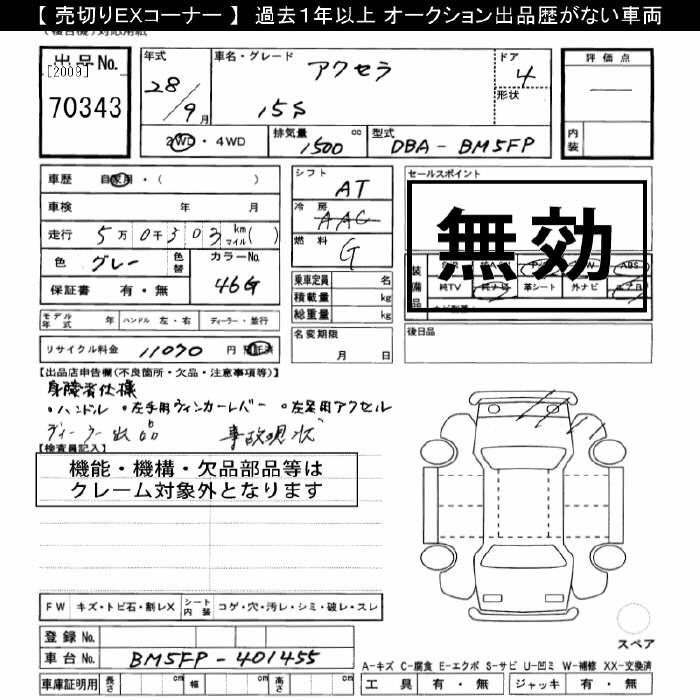 【 売切りEXコーナー 】 過去1年以上 オークション出品歴がない車両
出品No.
[2009]
70343
年式
28/9月
車名・グレード
アクセラ
15S
ドア
4
形状
評価点
—
内装
2WD・4WD
排気量 1500 cc
型式 DBA-BM5FP
車歴 自家用・( )
車検 年 月
走行 5万0千303 km マイル ( )
色 グレー 色替
カラーNo. 46G
保証書 有・無
シフト AT
冷房 AAC
燃料 G
乗車定員 名
積載量 kg
総重量 kg
セールスポイント
無効
装備品
ABS
純TV 純ナビ 革シート 外ナビ エアB
モデル年式 年 ハンドル 左・右 ディーラー・並行
リサイクル料金 11070 円 預託済
名変期限
月 日
後日品
【出品店申告欄(不良箇所・欠品・注意事項等)】
身障者仕様
・ハンドル ・左手用ウィンカーレバー ・左足用アクセル
ディーラー出品 事故現状
【検査員記入】
機能・機構・欠品部品等は
クレーム対象外となります
FW キズ・トビ石・割レX シート内装 コゲ・穴・汚レ・シミ・破レ・スレ
登録No.
車台No. BM5FP-401455
スペア
A-キズ C-腐食 E-エクボ S-サビ U-凹ミ W-補修 XX-交換済
車庫証明用 長さ cm 幅 cm 高さ cm
工具 有・無 ジャッキ 有・無